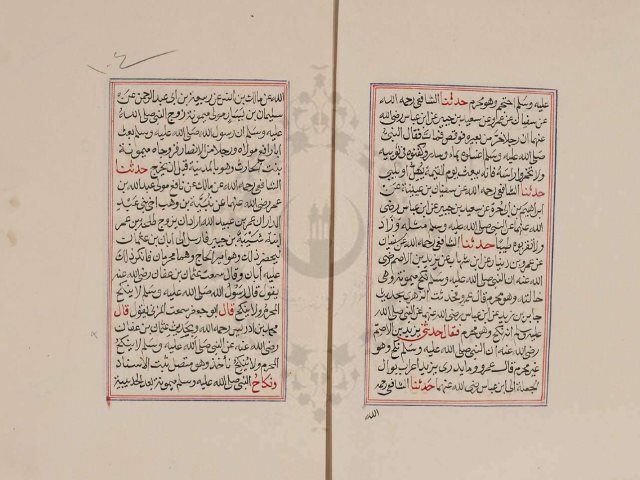 عليه وسلم احتجم وهو محرم حدثنا الشافعي رحمه الله
عن سفيان عن عمرو عن سعيد بن جبير عن ابن عباس رضي الله
عنهما ان رجلا خر من بعيره فوقص فمات فقال النبي
صلى الله عليه وسلم اغسلوه بماء وسدر وكفنوه في ثوبيه
ولا تخمروا راسه فانه يبعث يوم القيمة يهل او يلبي
حدثنا الشافعي رحمه الله عن سفيان بن عيينة عن
ابراهيم بن ابي حرة عن سعيد بن جبير عن ابن عباس رضي
الله عنهما عن النبي صلى الله عليه وسلم مثله وزاد
ولا تقربوه طيبا حدثنا الشافعي رحمه الله عن سفيان
عن عمرو بن دينار عن ابن شهاب عن يزيد بن الاصم رضي
الله عنه ان النبي صلى الله عليه وسلم نكح ميمونة وهي
خالته وهو محرم قال عمرو فحدثت الزهري بحديث
جابر بن زيد عن ابن عباس رضي الله عنهما عن النبي صلى الله
عليه وسلم انه نكح وهو محرم فقال حدثني يزيد بن الاصم
رضي الله عنه ان النبي صلى الله عليه وسلم نكح وهو
غير محرم قال عمرو وما يدري يزيد اعرابي بوال
الى ابن عباس رضي الله عنهما حدثنا الشافعي رحمه
الله
الله عن مالك بن انس عن ربيعة بن ابي عبد الرحمن عن
سليمان بن يسار مولى ميمونة زوج النبي صلى الله
عليه وسلم ان رسول الله صلى الله عليه وسلم بعث
ابا رافع مولاه ورجلا من الانصار فزوجاه ميمونة
بنت الحارث وهو بالمدينة قبل ان يخرج حدثنا
الشافعي رحمه الله عن مالك عن نافع مولى عبد الله بن
عمر رضي الله عنهما عن نبيه بن وهب اخي بني عبد
الدار ان عمر بن عبيد الله اراد ان يزوج طلحة بن عمر
ابنة شيبة بن جبير فارسل الى ابان بن عثمان
ليحضر ذلك وهو امير الحاج وهما محرمان فانكر ذلك
عليه ابان وقال سمعت عثمان بن عفان رضي الله عنه
يقول قال رسول الله صلى الله عليه وسلم لا ينكح
المحرم ولا ينكح قال ابو جعفر سمعت المزني يقول قال
محمد بن ادريس رحمه الله وبحديث عثمان بن عفان
رضي الله عنه عن النبي صلى الله عليه وسلم لا ينكح
المحرم ولا ينكح ناخذ وهو متصل ثبت الاسناد
ونكاح النبي صلى الله عليه وسلم ميمونة بعد الحديبية